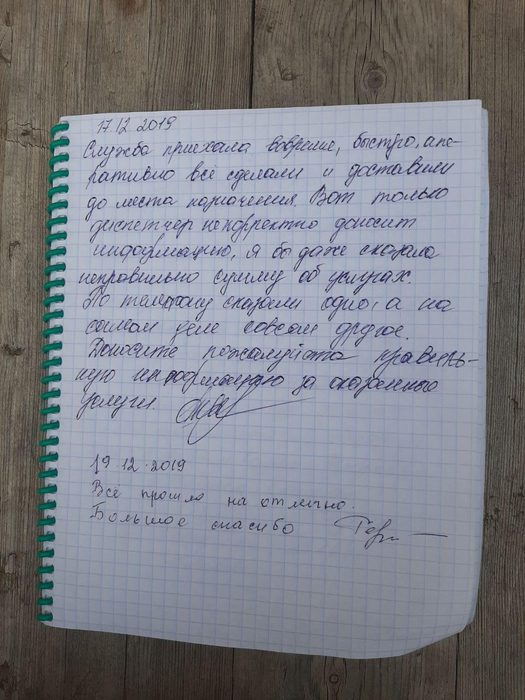 17.12.2019
Служба приехала вовремя, быстро, опе-
ративно всё сделали и доставили
до места назначения. Вот только
диспетчер некорректно доносит
информацию, я бы даже сказала
неправильно сумму об услугах.
По телефону сказали одно, а на
самом деле совсем другое.
Доносите пожалуйста правиль-
ную информацию за оказанные
услуги.
19.12.2019
Всё прошло на отлично.
Большое спасибо